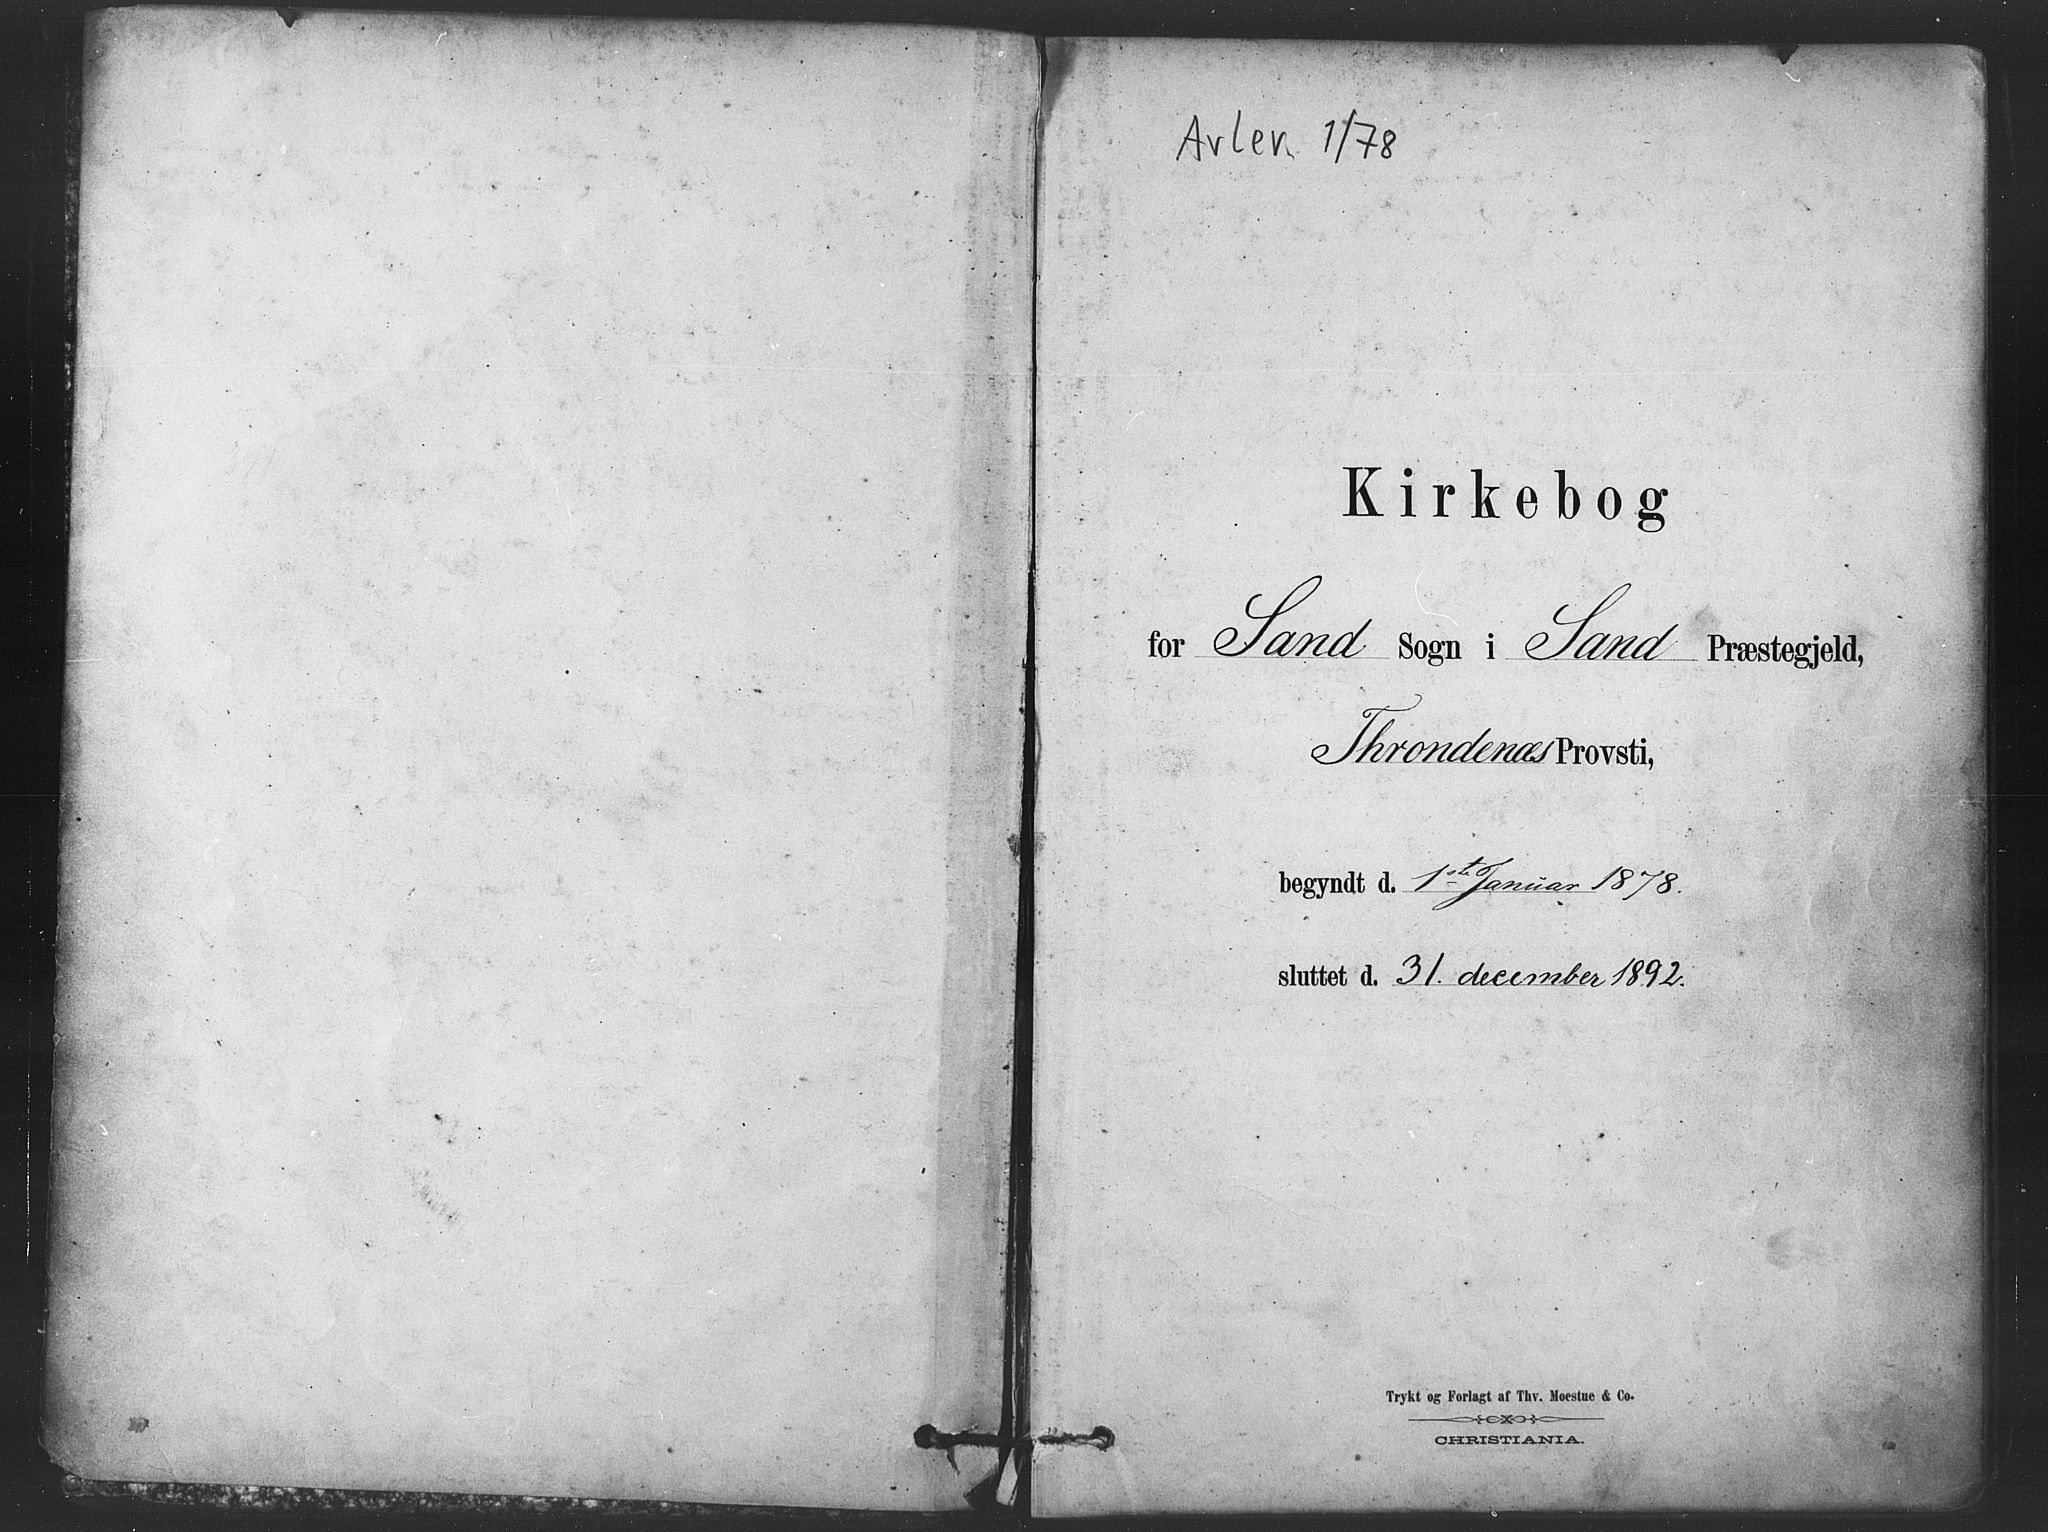 Avlev. 1/78
Kirkebog
for Sand Sogn i Sand Præstegjeld,
Throndenæs Provsti,
begyndt d. 1ste Januar 1878.
sluttet d. 31. december 1892.
Trykt og Forlagt af Thv. Moestue & Co.
CHRISTIANIA.